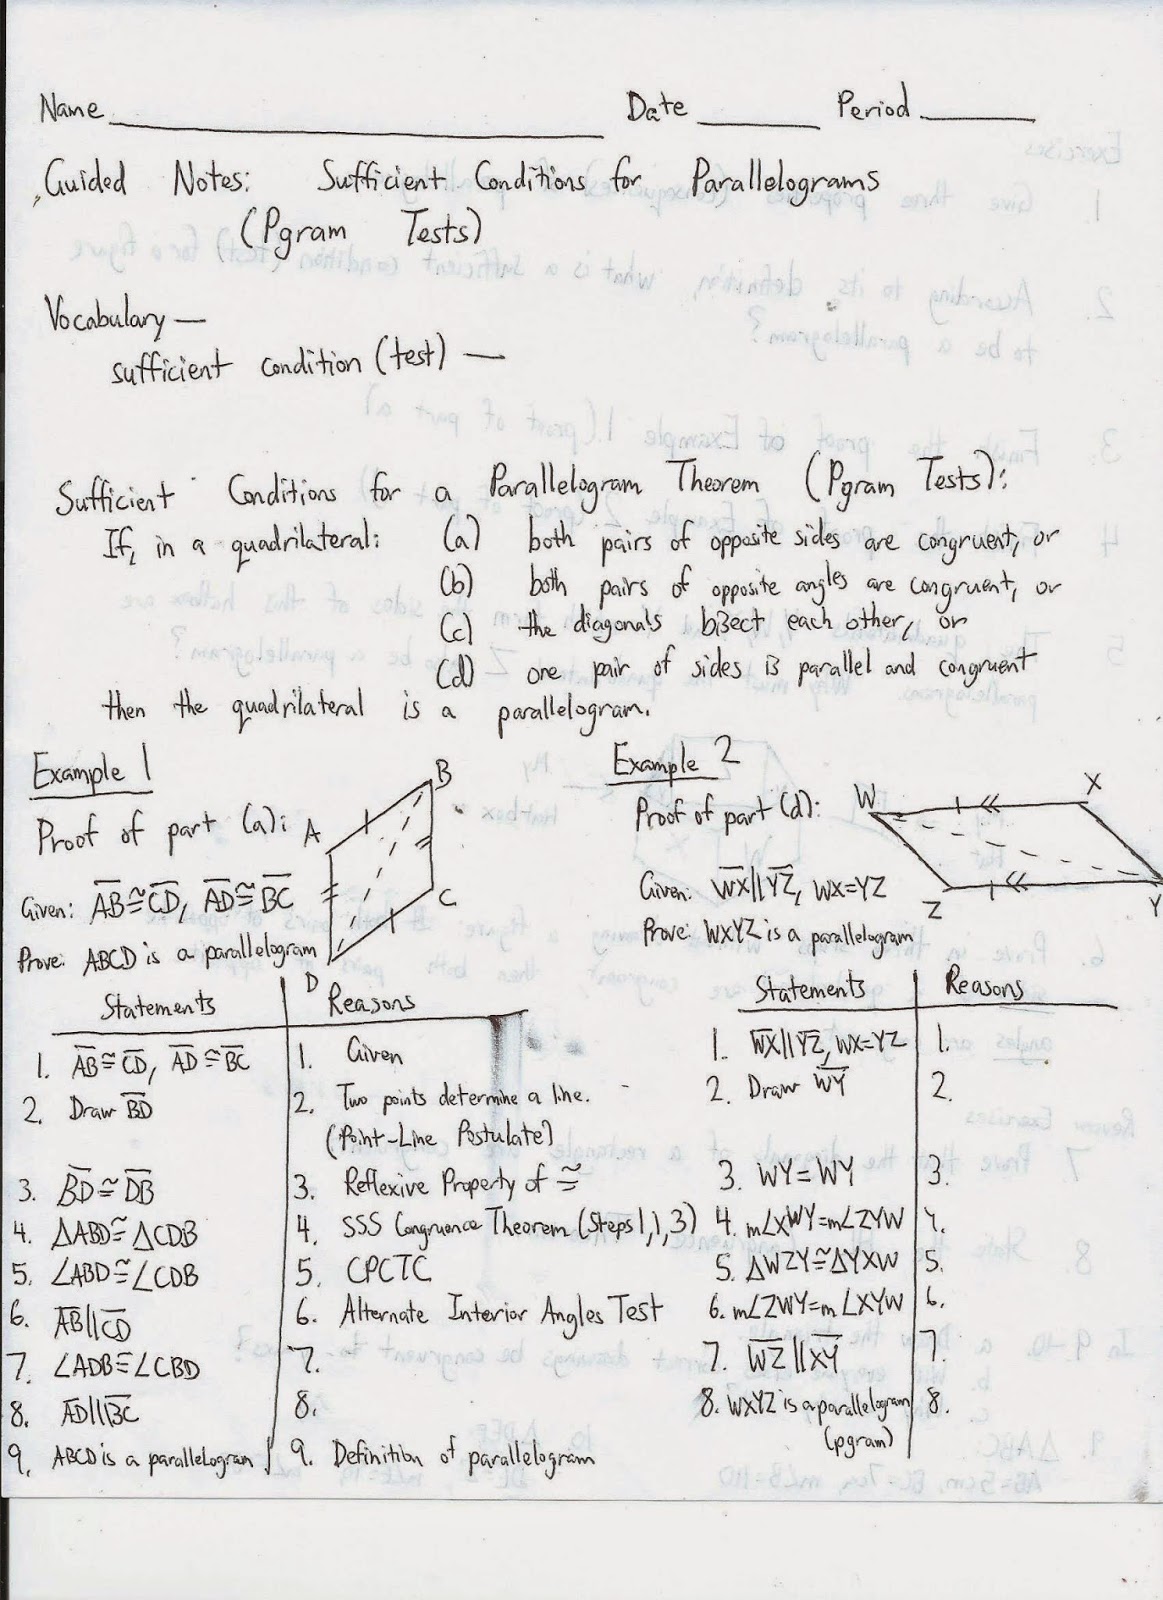 Name Date Period
Guided Notes: Sufficient Conditions for Parallelograms
(Pgram Tests)
Vocabulary —
sufficient condition (test) —
Sufficient Conditions for a Parallelogram Theorem (Pgram Tests):
If, in a quadrilateral: (a) both pairs of opposite sides are congruent, or
(b) both pairs of opposite angles are congruent, or
(c) the diagonals bisect each other, or
(d) one pair of sides is parallel and congruent
then the quadrilateral is a parallelogram.
Example 1
Proof of part (a):
A
B
C
D
Given: A̅B̅≅C̅D̅, A̅D̅≅B̅C̅
Prove: ABCD is a parallelogram
Statements Reasons
1. A̅B̅≅C̅D̅, A̅D̅≅B̅C̅ 1. Given
2. Draw B̅D̅ 2. Two points determine a line.
(Point-Line Postulate)
3. B̅D̅≅D̅B̅ 3. Reflexive Property of ≅
4. ΔABD≅ΔCDB 4. SSS Congruence Theorem (Steps 1,1,3)
5. ∠ABD≅∠CDB 5. CPCTC
6. A̅B̅||C̅D̅ 6. Alternate Interior Angles Test
7. ∠ADB≅∠CBD 7.
8. A̅D̅||B̅C̅ 8.
9. ABCD is a parallelogram 9. Definition of parallelogram
Example 2
Proof of part (d):
W
X
Z
Y
Given: W̅X̅||Y̅Z̅, WX=YZ
Prove: WXYZ is a parallelogram
Statements Reasons
1. W̅X̅||Y̅Z̅, WX=YZ 1.
2. Draw W̅Y̅ 2.
3. WY=WY 3.
4. m∠XWY=m∠ZYW 4.
5. ΔWZY≅ΔYXW 5.
6. m∠ZWY=m∠XYW 6.
7. W̅Z̅||X̅Y̅ 7.
8. WXYZ is a parallelogram 8.
(pgram)